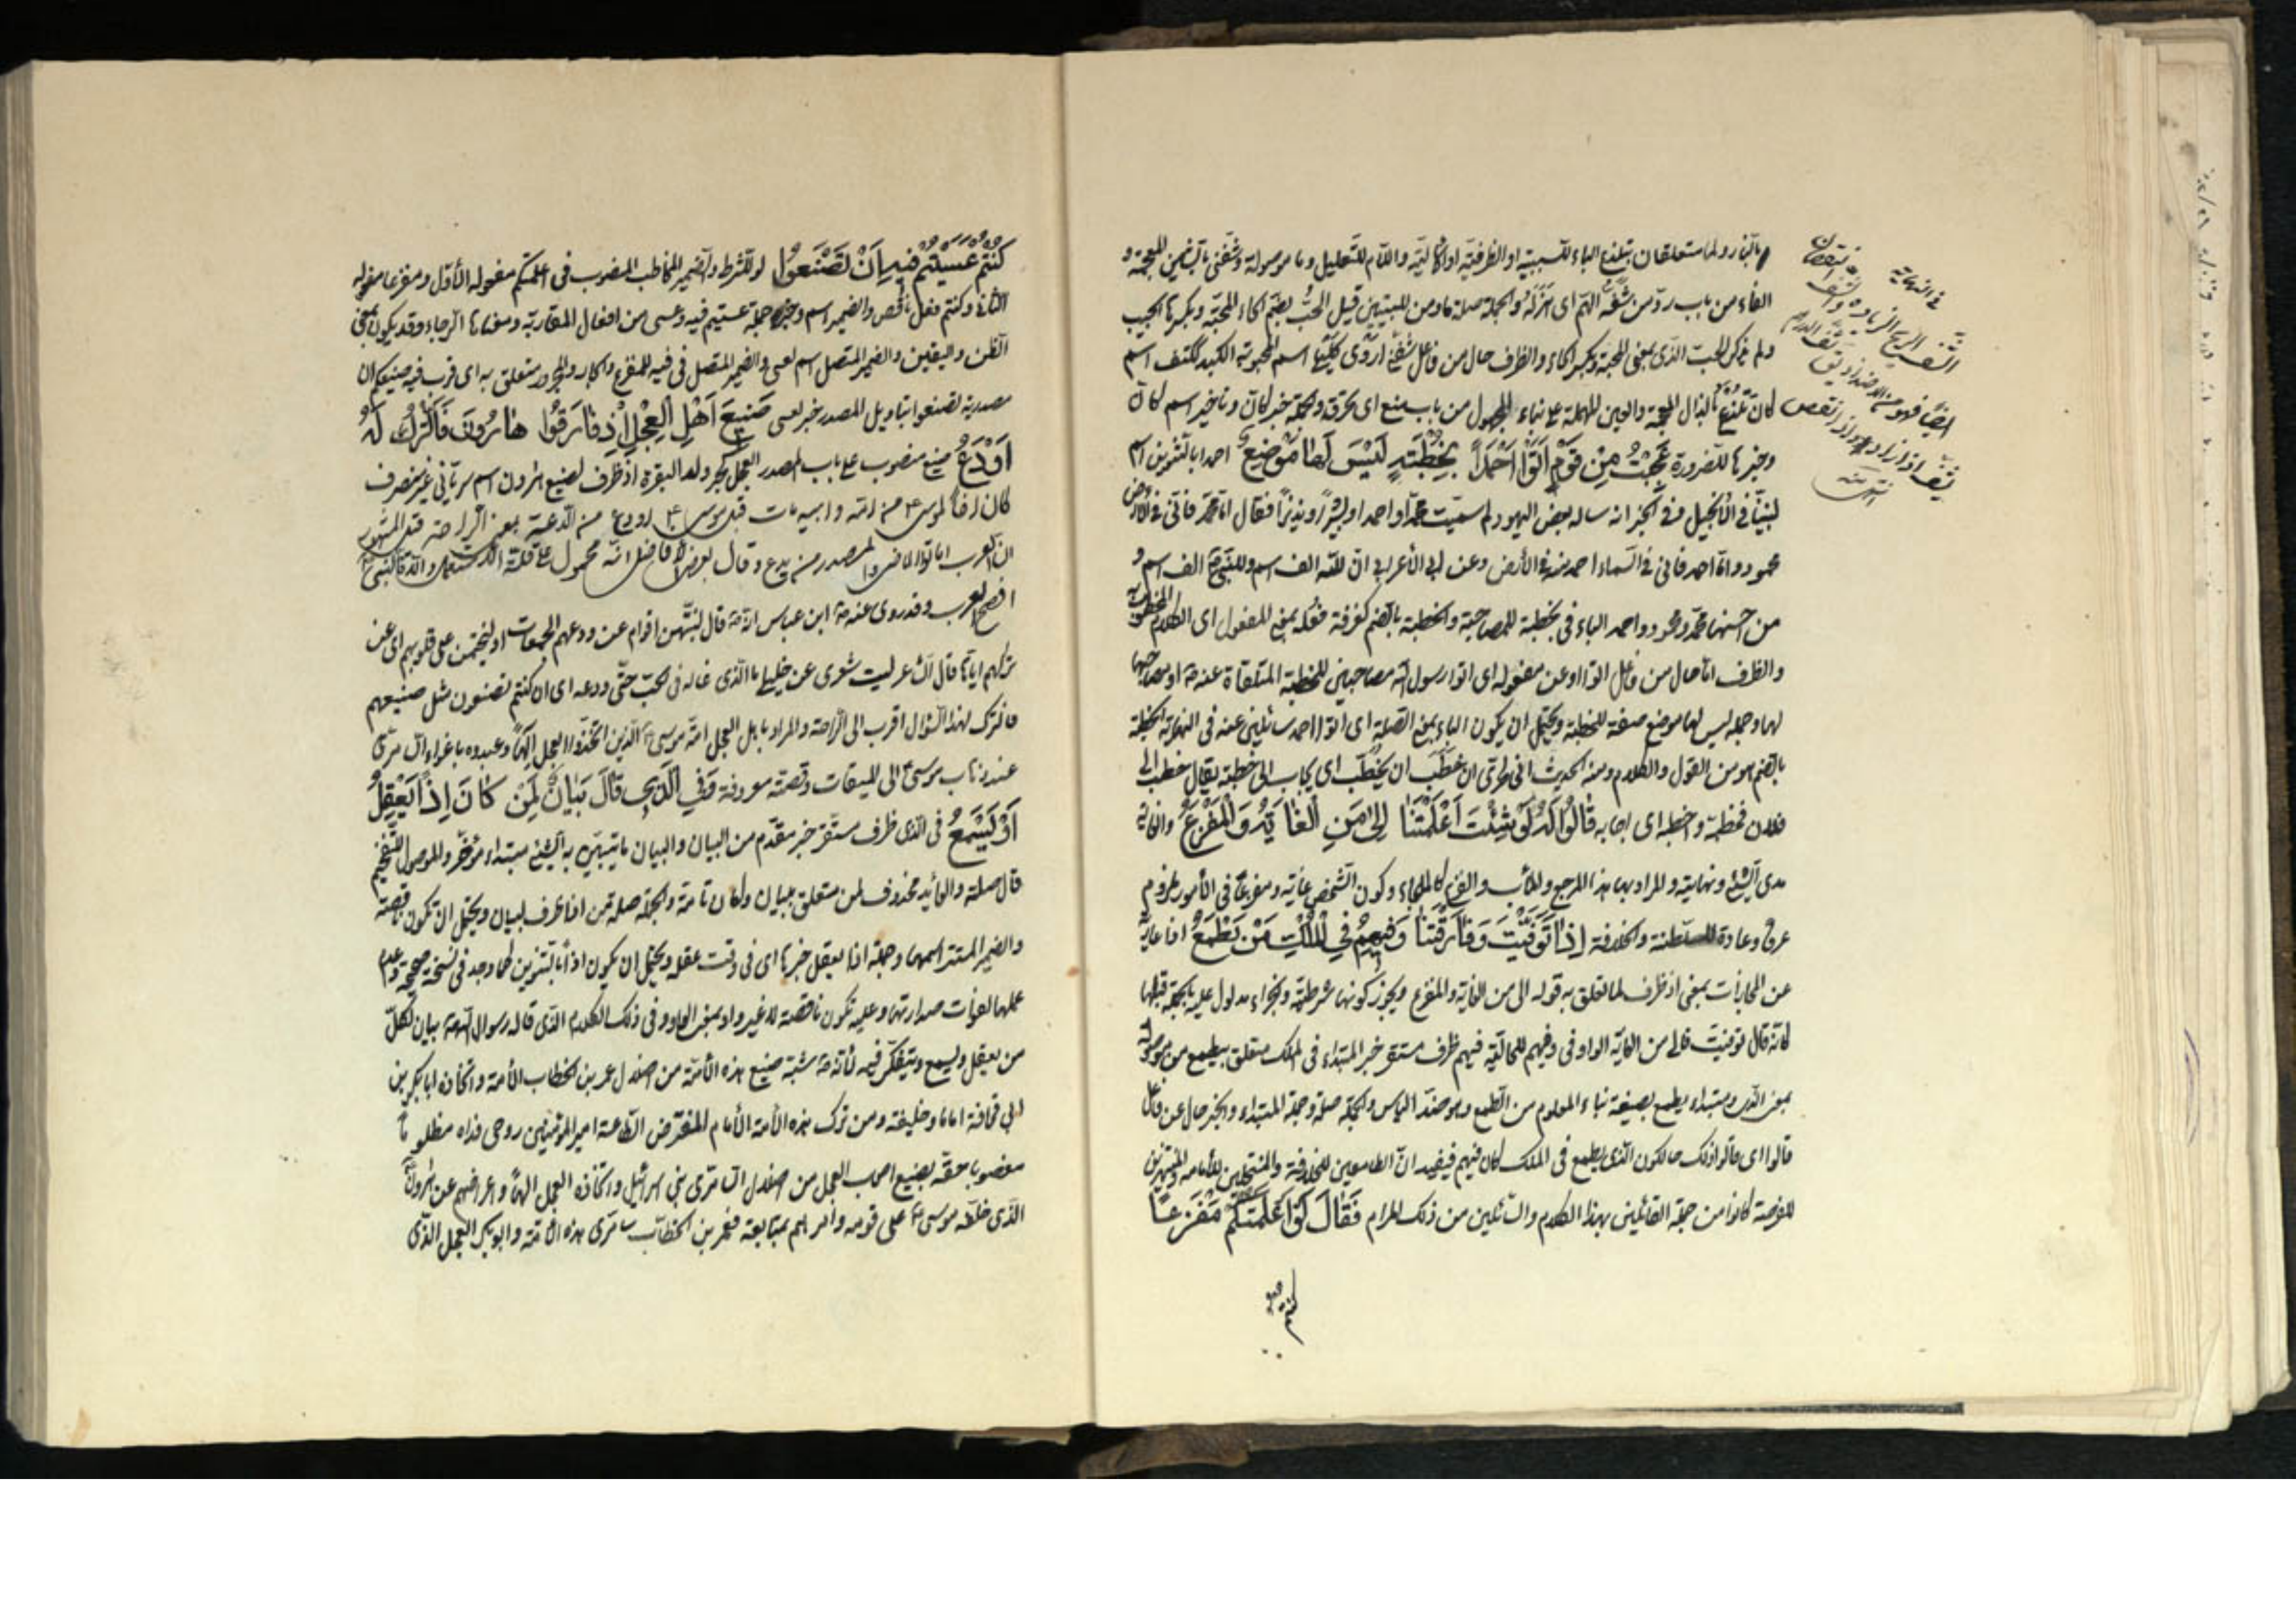 بالنار ولما متعلقان بتلذع الباء للسببية او الظرفية او الآلية واللام للتعليل وما موصولة وشفنى بالشين المعجمة و
الفاء من باب ردّ من شفّه الهمّ اى هزله والجملة صلة ما ومن للتبيين قيل الحُبّ بضم الحاء المحبّة وبكسرها الحبيب
ولم يذكر الحبّ الذى بمعنى المحبة وبكسر الحاء والظرف حال من فاعل شفّنى اروى كليتها اسم المحبوبة الكبد ككتف اسم
كان تُلذع بالذال المعجمة والعين المهملة على بناء المجهول من باب منع اى يحرق والجملة خبر كان وتأخير اسم كان
وخبرها للضرورة عَجِبْتُ مِنْ قَوْمٍ اَتَوْا اَحْمَداً بِخُطْبَةٍ لَيْسَ لَهَا مَوْضِعُ احمدا بالتنوين اسم
لنبيّنا فى الانجيل وفى الخبر انه ساله بعض اليهود لم سميت محمّدا واحمد او بشيراً ونذيراً فقال امّا محمّد فانّى فى الأرض
محمود وامّا احمد فانى فى السّماء احمد منه فى الأرض وعن ابى الأعرابى انّ للّه الف اسم وللنّبى الف اسم و
من احسنها محمّد ومحمود واحمد الباء فى بخطبة للمصاحبة والخطبة بالضم كغرفة فُعلة بمعنى المفعول اى الكلام المخطوب به
والظرف امّا حال من فاعل اتوا او عن مفعوله اى اتوا رسول الله مصاحبين للخطبة المتلقاة عنه او مصاحبها
لها وجملة ليس لها موضع صفة للخطبة ويحتمل ان يكون الباء بمعنى الصلة اى اتوا احمد سائلين عنه فى النهاية الخطبة
بالضم هو من القول والكلام ومنه الحديث انى لحرىّ ان خطب ان يُخطّب اى يجاب الى خطبة يقال خطب الى
فلان فخطبه واخطبه اى اجابه قَالُوا لَهُ لَوْ شِئْتَ اَعْلَمْتَنَا اِلَى مَنِ الْغَايَةُ وَالْمَفْزَعُ والغاية
مدى الشّئ ونهايته والمراد بها هذا المرجع والمآب والمفزع كالملجاء وكون الشّخص غاية ومفزعاً فى الأمور ملزوم
عرفاً وعادة للسّلطنة والخلافة اِذَا تَوَفَّيْتَ وَفَارَقْتَنَا وَفِيهِمْ فِي الْمُلْكِ مَنْ يَطْمَعُ اذا عارية
عن المجازات بمعنى اذ ظرف لما تعلق به قوله الى من الغاية والمفزع ويجوز كونها شرطيّة والجزاء مدلول عليه بالجملة قبلها
كانّه قال لو توفيت فالى من الغاية الواو فى وفيهم للحاليّة فيهم ظرف مستقر خبر المبتداء فى الملك متعلق بيطمع من موصولة
بمعنى الّذى ومبتداء يطمع بصيغة بناء المعلوم من الطمع وهو ضدّ الياس والجملة صلة وجملة المبتداء والخبر حال عن فاعل
قالوا اى قالوا ذلك حالكون الذى يطمع فى الملك كان فيهم فيفيد انّ الطامعين للخلافة والمنتحلين للأمامة والمنتهزين
للفرصة كانوا من جملة القائلين بهذا الكلام والسّائلين من ذلك المرام فَقَالَ لَوْ اَعْلَمْتُكُمْ مَفْزَعاً
كنتم
فى النهاية
الشّف الربح والزيادة والشف النقصان
ايضا فهو من الأضداد يق شف الدرهم
يشف اذا زاد واذا نقص
انتهى
كُنْتُمْ عَسَيْتُمْ فِيهِ اَنْ تَصْنَعُوا لو للشرط والضمير المخاطب المنصوب فى اعلمتكم مفعوله الأوّل ومفزعا مفعوله
الثانى وكنتم فعل ناقص والضمير اسم وخبره جملة عسيتم فيه وعسى من افعال المقاربة ومعناها الرجاء وقد يكون بمعنى
الظن واليقين والضمير المتصل اسم لعسى والضمير المتصل فى فيه للمفزع والجار والمجرور متعلق به اى قرب فيه صنيعكم ان
مصدرية تصنعوا بتاويل المصدر خبر لعسى صَنِيعَ اَهْلِ الْعِجْلِ اِذْ فَارَقُوا هَارُونَ فَالتَّرْكُ لَهُ
اَوْدَعُ صنيع منصوب على باب المصدر العجل بكسر ولد البقرة اذ ظرف لصنيع هارون اسم سريانى غير منصرف
كان اخا لموسى ع من امّه وابيه مات قبل موسى ع اودع من الدّعة بمعنى الراحة فقد المشهور
ان العرب اماتوا الماضى والمصدر من يدع وقال بعض الأفاضل انّه محمول على قلة الاستعمال والا فالنبى
افصح العرب وقد روى عنه ابن عباس انّه قال لينتهين اقوام عن ودعهم الجمعات او ليختمن على قلوبهم اى عن
تركهم اياها قال الشاعر ليت شعرى عن خليلى ما الذى غاله فى الحب حتّى ودعه اى ان كنتم تصنعون مثل صنيعهم
فالترك لهذا السّؤال اقرب الى الراحة والمراد باهل العجل امّة موسى الذين اتّخذوا العجل الهاً وعبدوه باغواء السّامرىّ
عند ذهاب موسى الى الميقات وقصّته معروفة وَفِي الَّذِي قَالَ بَيَانٌ لِمَنْ كَانَ اِذاً يَعْقِلُ
اَوْ يَسْمَعُ فى الّذى ظرف مستقر خبر مقدّم من البيان والبيان ما يتبيّن به الشّئ مبتداء مؤخّر والموصول للتفخيم
قال صلة والعايد محذوف لمن متعلق ببيان وكان تامّة والجملة صلة من اذا ظرف لبيان ويحتمل ان تكون ناقصة
والضمير المستتر اسمها وجملة اذا يعقل خبرها اى فى وقت عقله ويحتمل ان يكون اذاً بالتنوين كما وجد فى نسخة صحيحة وعدم
عملها لفوات صدارتها وعليه تكون ناقصة لا غير واو بمعنى الواو وفى ذلك الكلام الذى قاله رسول اللّه بيان لكلّ
من يعقل ويسمع ويتفكّر فيه لأنّه شبّه صنيع هذه الأمّة من اضلال عمر بن الخطاب الأمة واتخاذ ابابكر بن
ابى قحافة اماما وخليفة ومن ترك هذه الأمة الأمام المفترض الطاعة امير المؤمنين روحى فداه مظلوما
مغصوبا حقّه بصنيع اصحاب العجل من اضلال السّامرى بنى اسرائيل واتخاذه العجل الهاً واعراضهم عن هارون
الّذى خلّفه موسى على قومه وامرهم بمتابعته فعمر بن الخطاب سامرى هذه الأمّة وابو بكر العجل الذى